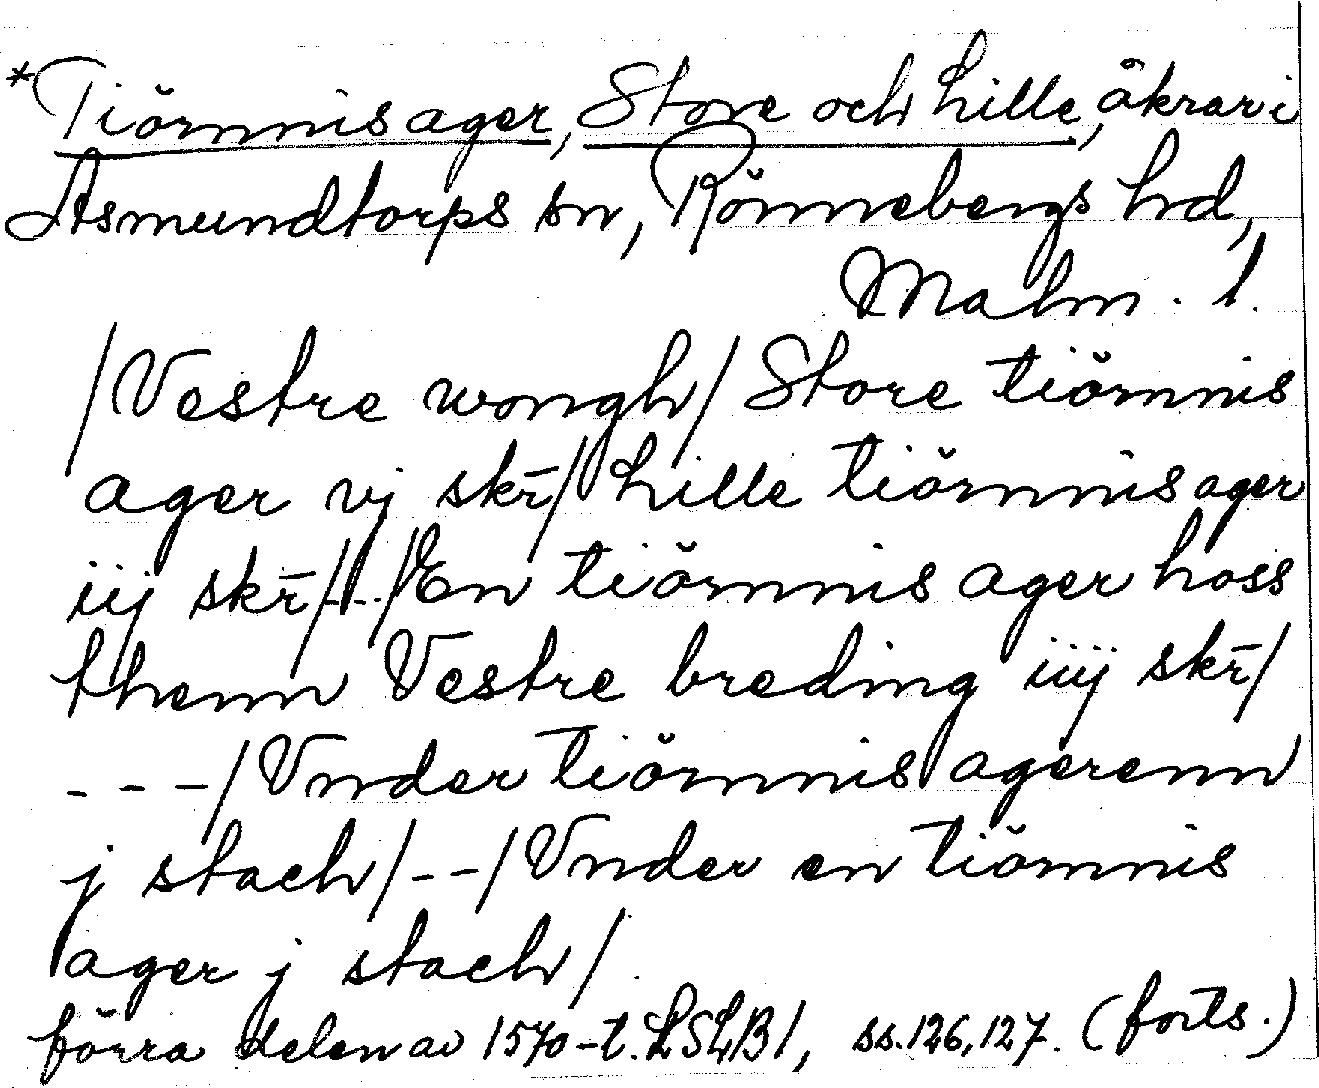 *Tiörnnis ager, Store och Lille, åkrar i
Asmundtorps sn, Rönnebergs hd,
Malm. l.
/Vestre wongh/ Store tiörnnis
ager vj skr̄/ Lille tiörnnis ager
iij skr̄/-.-/En tiörnnis ager hoss
thenn Vestre breding iiij skr̄/
---/Vnder tiörnnis agerenn
j stach/--/Vnder en tiörnnis
ager j stach/.
förra delen av 1570-t. LSLB 1, ss. 126, 127. (forts.)